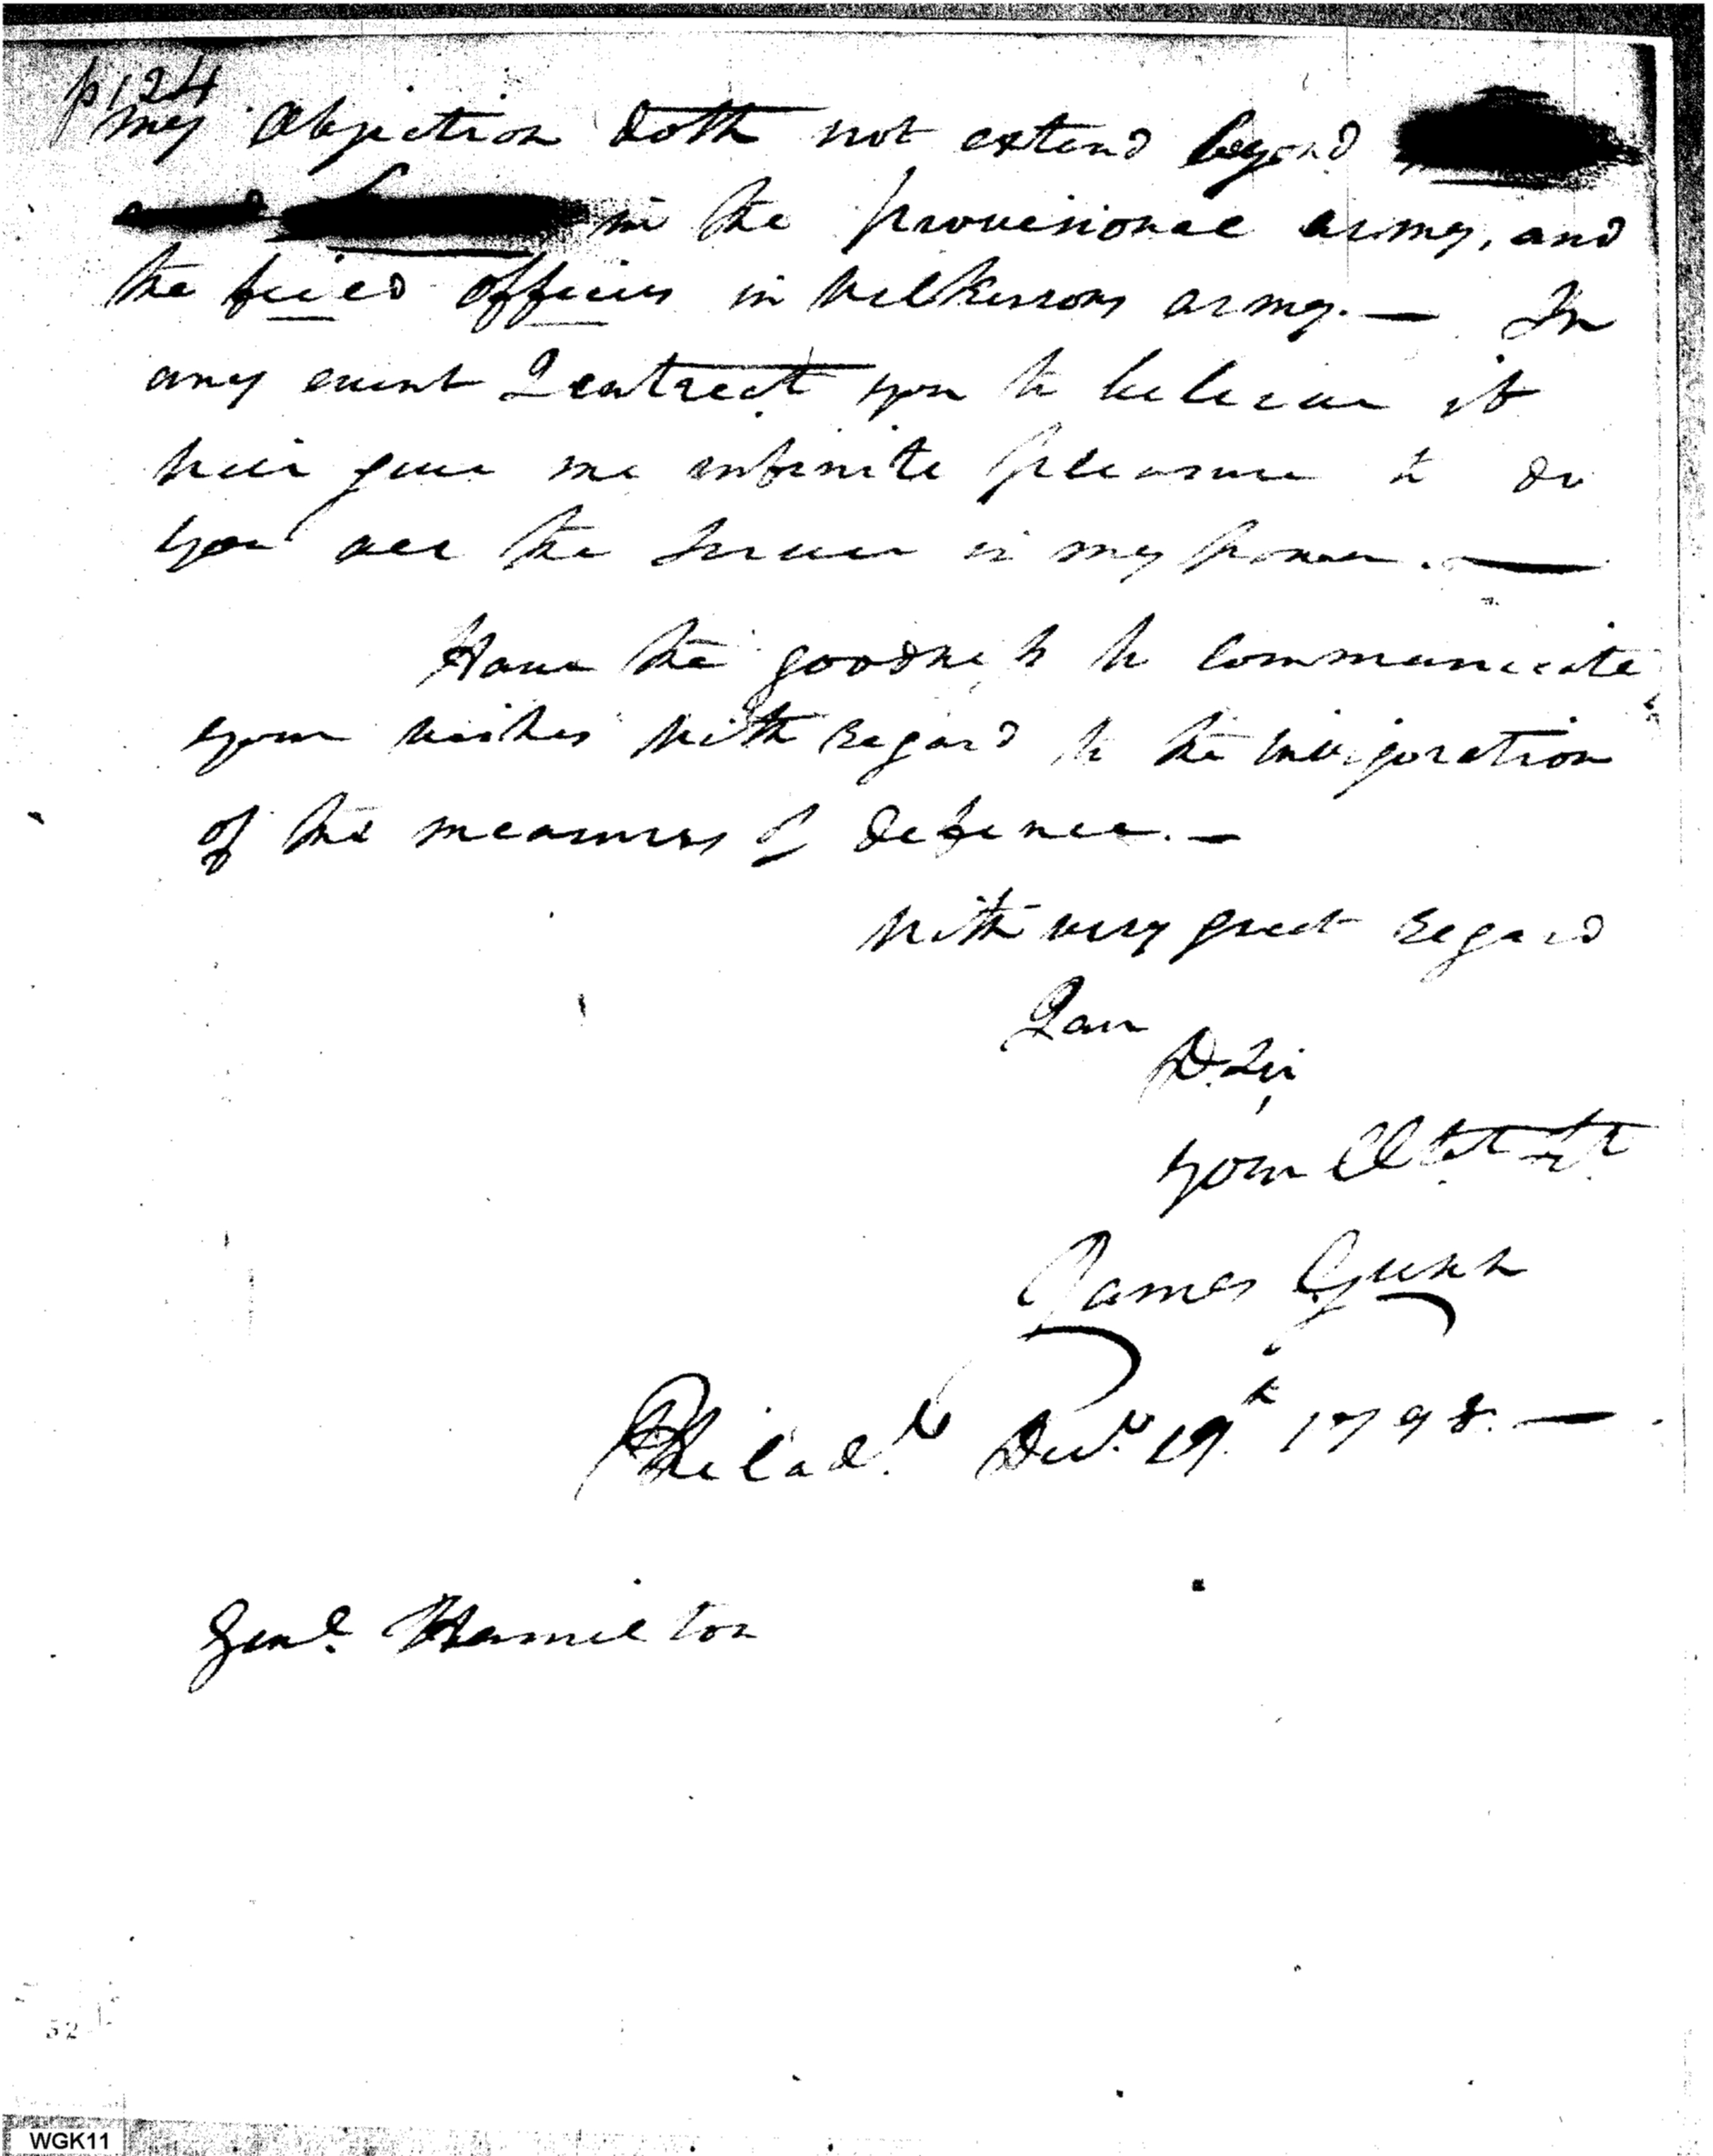 p 124
my objection doth not extend beyond
and in the provisional army, and
the field officers in Wilkinsons army. — In
any event I entreat you to believe it
will give me infinite pleasure to do
you all the Service in my power. —
Have the goodness to communicate
your wishes with regard to the invigoration
of the measures of defence. —
With very great regard
I am
D. Sir
your Obt. St.
James Gunn
Philad.a Decr. 19th 1798. —
Genl. Hamilton
52
WGK11